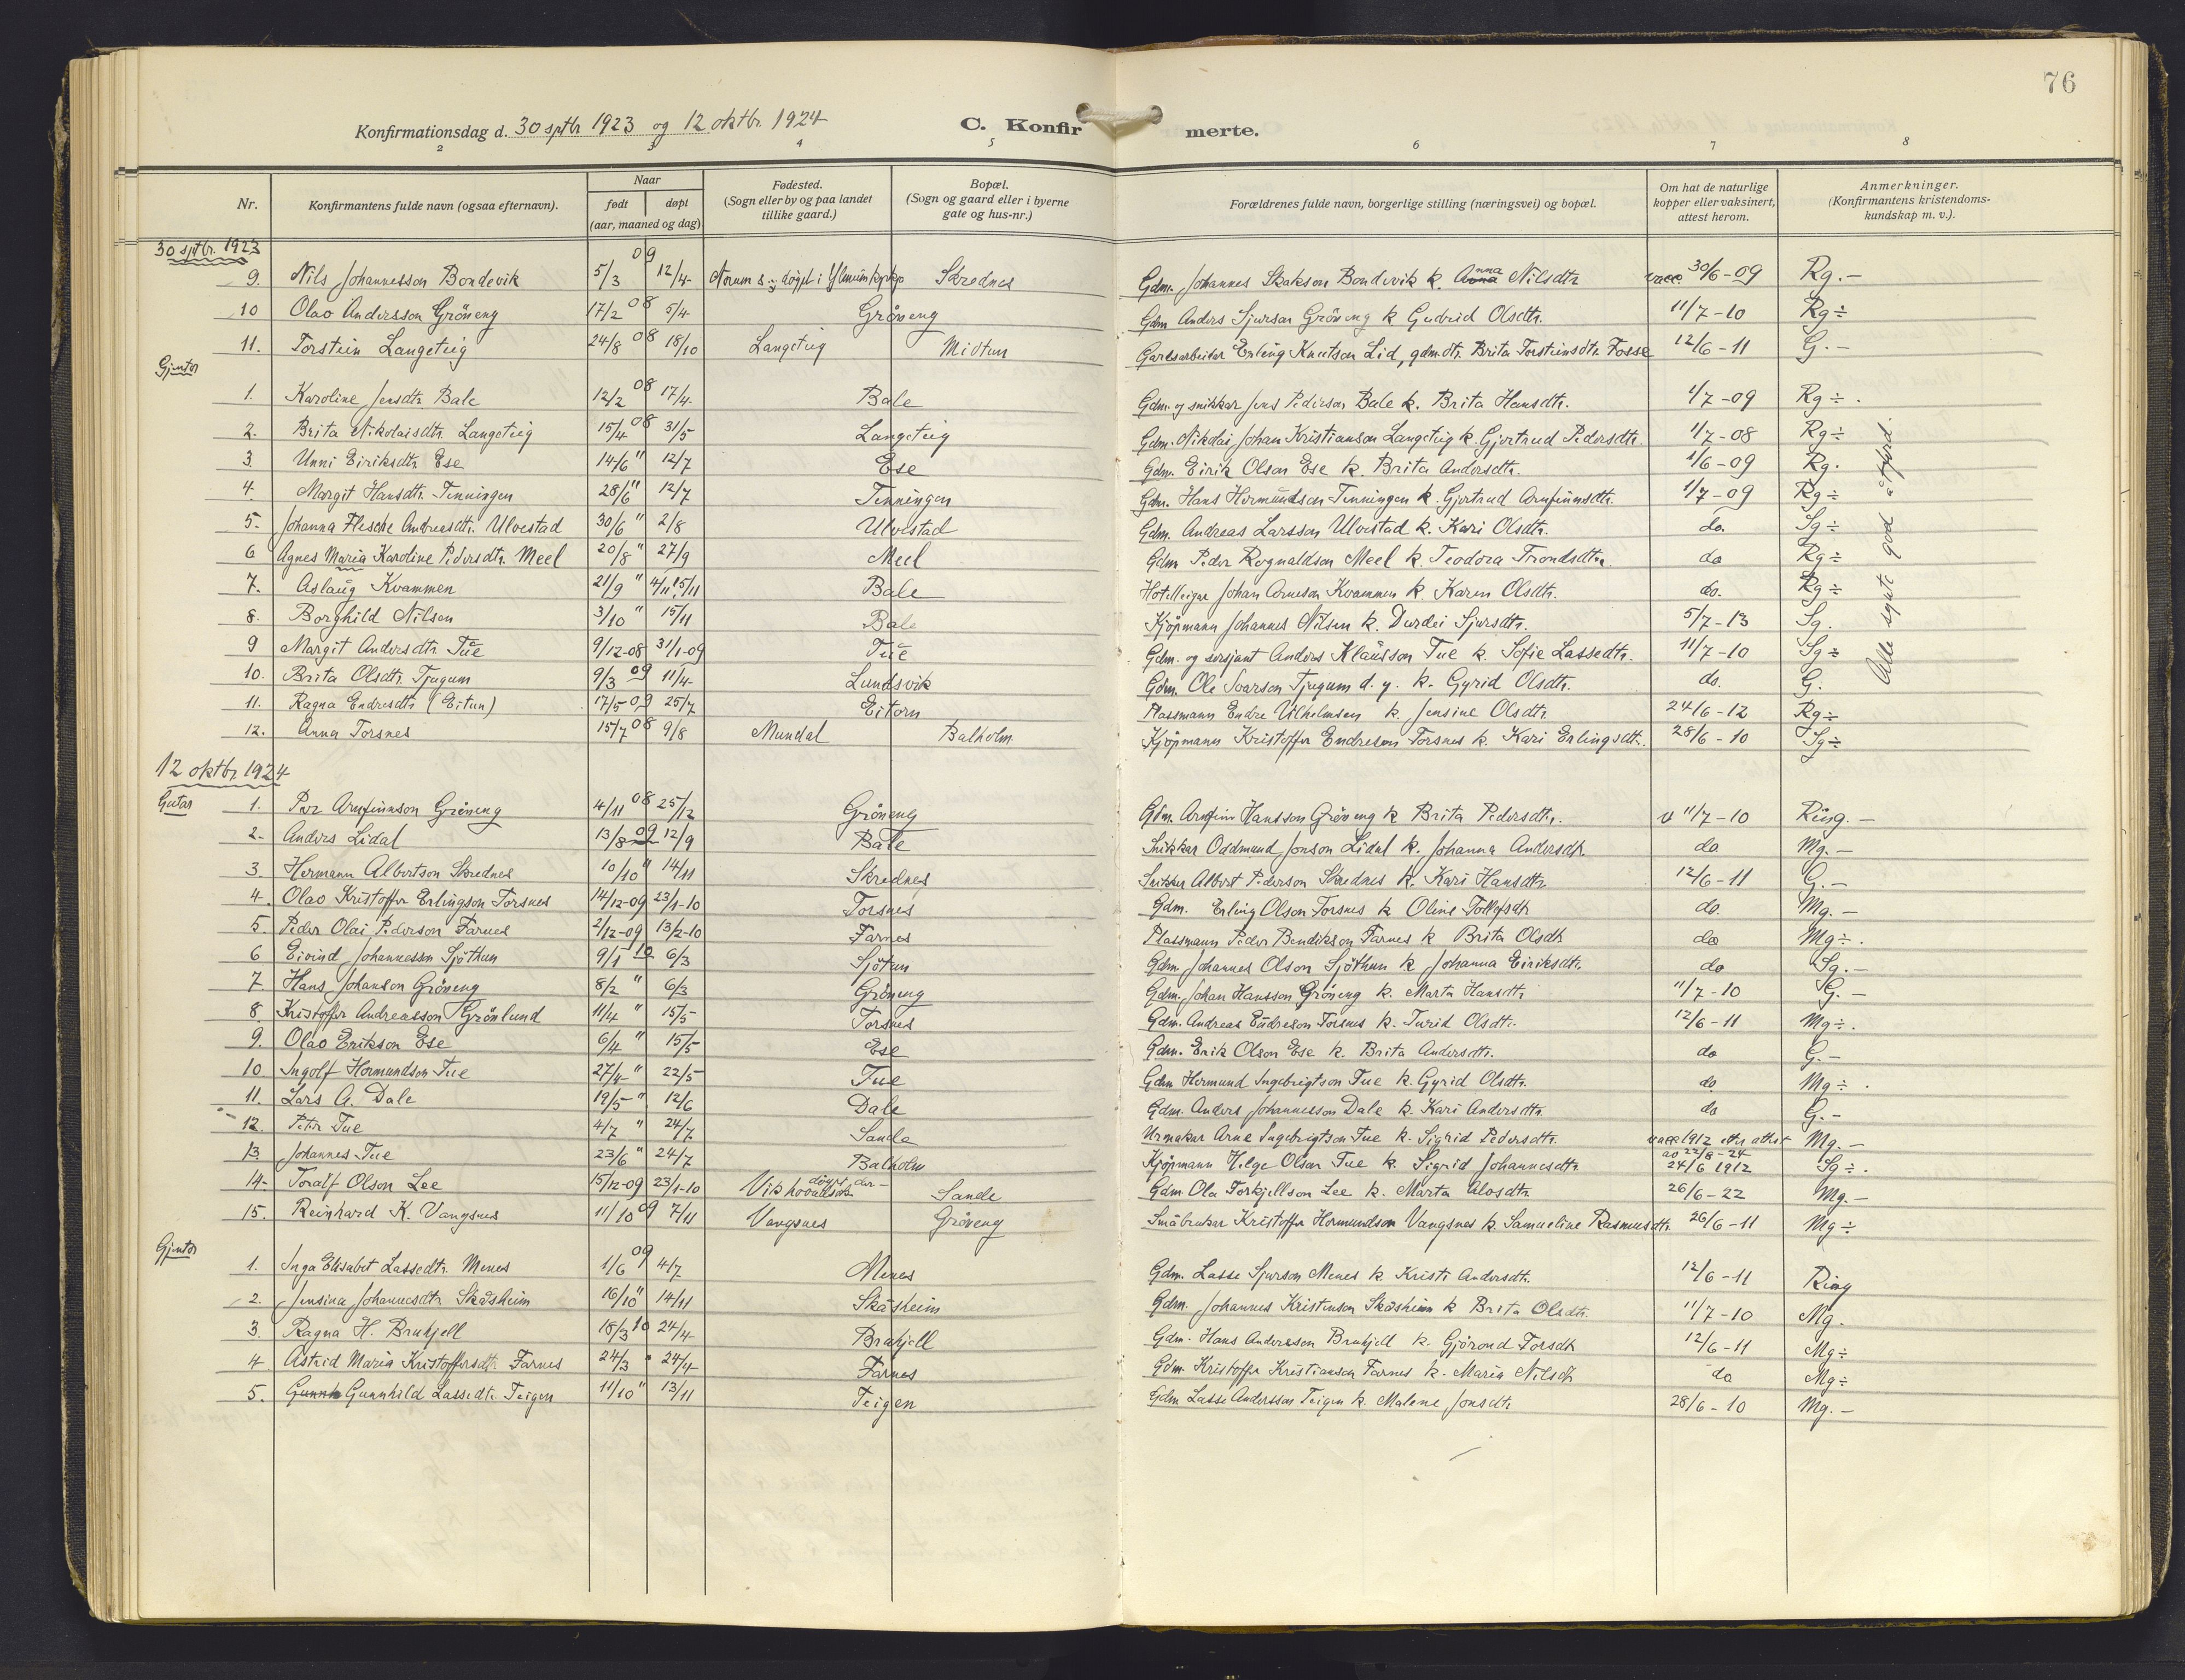 76
Konfirmationsdag d. 30 sptbr 1923 og 12 oktbr. 1924
C. Konfirmerte.
2 3 4 5 6 7 8
Nr. Konfirmantens fulde navn (ogsaa efternavn). Naar født døpt (aar, maaned og dag) Fødested. (Sogn eller by og paa landet tillike gaard.) Bopæl. (Sogn og gaard eller i byerne gate og hus-nr.) Forældrenes fulde navn, borgerlige stilling (næringsvei) og bopæl. Om hat de naturlige kopper eller vaksinert, attest herom. Anmerkninger. (Konfirmantens kristendoms-kundskap m. v.).
30 sptbr. 1923
9. Nils Johannesson Bondevik 5/3 09 12/4 Norum s. døypt i Skrednes Gdm. Johannes Skakson Bondevik k. Anna Nilsdtr vacc. 30/6-09 Rg.-
10 Olav Andersson Gröneng 17/2 08 5/4 Gröneng Gdm Anders Sjurson Gröneng k Gudrid Olsdtr. 11/7-10 Rg÷
11. Torstein Langeteig 24/8 08 18/10 Langeteig Midtun Garlsarbeidar Erling Knutson Lid, gdm.dtr. Brita Torsteinsdtr. Fosse 12/6-11 G.-
Gjentor
1. Karoline Jensdtr. Bale 12/2 08 17/4 Bale Gdm. og snikkar Jens Pederson Bale k. Brita Hansdtr. 1/7-09 Rg÷.
2. Brita Nikolaisdtr. Langeteig 15/4 08 31/5 Langeteig Gdm. Nikolai Johan Kristianson Langeteig k. Gjertrud Pedersdtr. 1/7-08 Rg÷
3. Unni Eiriksdtr Ese 14/6 " 12/7 Ese Gdm. Eirik Olson Ese k. Brita Andersdtr. 1/6-09 Rg.
4. Margit Hansdtr. Tenningen 28/6 " 12/7 Tenningen Gdm. Hans Hermundson Tenningen k. Gjertrud Arnfinnsdtr. 1/7-09 Rg÷
5. Johanna Flesche Andreasdtr. Ulvestad 30/6 " 2/8 Ulvestad Gdm. Andreas Larsson Ulvestad k. Kari Olsdtr. do. Sg÷
6 Agnes Maria Karoline Pedersdtr. Meel 20/8 " 27/9 Meel Gdm Peder Rognaldson Meel k. Teodora Trondsdtr. do Rg÷
7. Aslaug Kvammen 21/9 " 4/11, 15/11 Bale Hotelleigar Johan Arneson Kvammen k. Karen Olsdtr. do. Rg÷
8. Borghild Nilsen 3/10 " 15/11 Bale Kjöpmann Johannes Nilsen k. Durdei Sjursdtr. 5/7-13 Sg.
9 Margit Andersdtr Tue 9/12-08 31/1-09 Tue Gdm. og sersjant Anders Klausson Tue k. Sofie Lassedtr. 11/7-10 Sg÷
10. Brita Olsdtr. Tjugum 9/3 09 11/4 Lundsvik Gdm. Ole Ivarson Tjugum d. y. k. Gyrid Olsdtr. do. G.
11. Ragna Endresdtr (Eitun) 17/5 09 25/7 Eitorn Plassmann Endre Vilhelmsen k. Jensine Olsdtr. 24/6-12 Rg÷
12. Anna Torsnes 15/7 08 9/8 Mundal Balholm Kjöpmann Kristoffer Endreson Torsnes k. Kari Erlingsdtr. 28/6-10 Sg÷
Alle synte god åtferd.
12 oktbr 1924
Gutar 1. Per Arnfinnson Gröneng 4/11 08 25/12 Gröneng Gdm. Arnfinn Hansson Gröneng k Brita Pedersdtr. v 11/7-10 Ring.-
2. Anders Lidal 13/8 09 12/9 Bale Snikkar Oddmund Jonson Lidal k. Johanna Andersdtr. do Mg.-
3. Hermann Albertson Skrednes 10/10 " 14/11 Skrednes Snikkar Albert Pederson Skrednes k. Kari Hansdtr. 12/6-11 G.-
4. Olav Kristoffer Erlingson Torsnes 14/12-09 23/1-10 Torsnes Gdm. Erling Olson Torsnes k Oline Tollefsdtr do. Mg.-
5. Peder Olai Pederson Farnes 2/12-09 13/2-10 Farnes Plassmann Peder Bendikson Farnes k Brita Olsdtr do Mg÷.
6 Eivind Johannesson Sjöthun 9/1 10 6/3 Sjötun Gdm. Johannes Olson Sjöthun k Johanna Eiriksdtr. do Sg.-
7. Hans Johanson Gröneng 8/2 " 6/3 Gröneng Gdm. Johan Hansson Gröneng k. Marta Hansdtr. 11/7-10 G.-
8. Kristoffer Andreasson Grönlund 11/4 " 15/5 Torsnes Gdm. Andreas Endreson Torsnes k. Turid Olsdtr. 12/6-11 Mg÷.
9. Olav Erikson Ese 6/4 " 15/5 Ese Gdm. Erik Olson Ese k. Brita Andersdtr. do G.-
10. Ingolf Hermundson Tue 27/4 " 22/5 Tue Gdm Hermund Ingebrigtson Tue k. Gyrid Olsdtr. do Mg÷.
11. Lars A. Dale 19/5 " 12/6 Dale Gdm. Anders Johannesson Dale k. Kari Andersdtr. do G.-
12. Peter Tue 4/7 " 24/7 Sande Urmakar Arne Ingebrigtson Tue k. Sigrid Pedersdtr. vacc 1912 etter attest av 22/8-24 Mg.-
13. Johannes Tue 23/6 " 24/7 Balholm Kjöpmann Helge Olson Tue k. Sigrid Johannesdtr. 24/6 1912 Sg÷.
14. Toralf Olson Lee 15/12-09 23/1-10 Vik hovudsokn döypt der- Sande Gdm Ola Torkjellson Lee k. Marta Olosdtr. 26/6-22 Mg.-
15. Reinhard K. Vangsnes 11/10 09 7/11 Vangsnes Gröneng Småbrukar Kristoffer Hermundson Vangsnes k. Samueline Rasmusdtr. 26/6-11 Mg÷
Gjentor
1. Inga Elisabet Lassedtr. Menes 1/6 09 4/7 Menes Gdm. Lasse Sjurson Menes k. Kristi Andersdtr. 12/6-11 Ring
2. Jensina Johannesdtr Skåsheim 16/10 " 14/11 Skåsheim Gdm. Johannes Kristenson Skåsheim k Brita Olsdtr. 11/7-10 Mg.
3. Ragna H. Brukjell 18/3 10 24/4 Brukjell Gdm. Hans Anderson Brukjell k. Gjörond Torsdtr 12/6-11 Mg÷
4. Astrid Maria Kristoffersdtr. Farnes 24/3 " 24/4 Farnes Gdm. Kristoffer Kristianson Farnes k. Maria Nilsdtr do Mg÷
5. Gunnh Gunnhild Lassedtr. Teigen 11/10 " 13/11 Teigen Gdm Lasse Andersson Teigen k. Malene Jonsdtr. 28/6-10 Mg.-